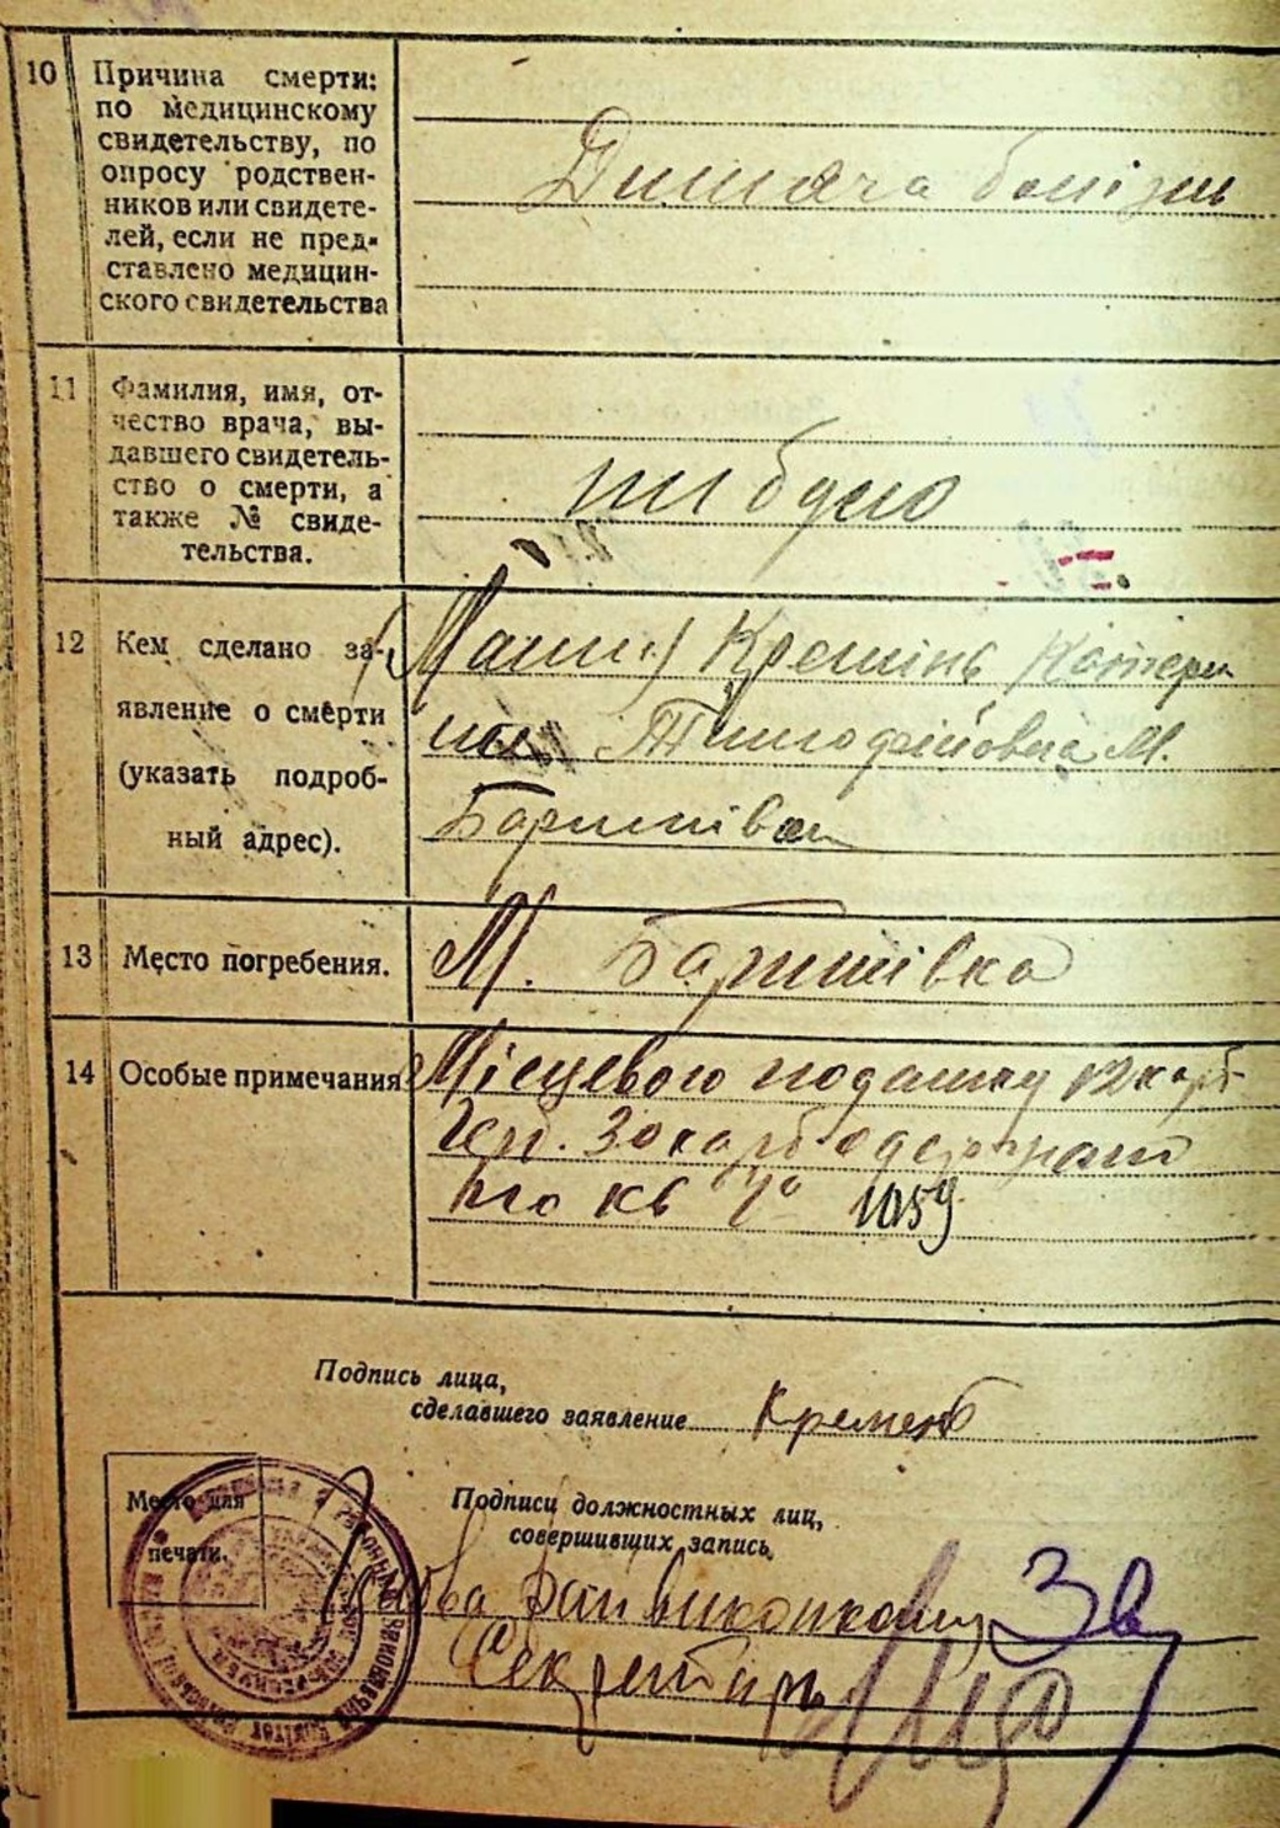 10 Причина смерти:
по медицинскому
свидетельству, по
опросу родствен-
ников или свидете-
лей, если не пред-
ставлено медицин-
ского свидетельства
Дитяча болізнь
11 Фамилия, имя, от-
чество врача, вы-
давшего свидетель-
ство о смерти, а
также № свиде-
тельства.
не було
12 Кем сделано за-
явление о смерти
(указать подроб-
ный адрес).
(Мати) Кремінь Катери
на Тимофійовна М.
Баришівка
13 Место погребения.
М. Баришівка
14 Особые примечания
Місцевого податку 12 карб
Герб. 30 карб одержано
по кв № 1059
Подпись лица,
сделавшего заявление Кремень
Место для
печати.
Подписи должностных лиц,
совершивших запись
Голова Райвиконкому
Секретарь